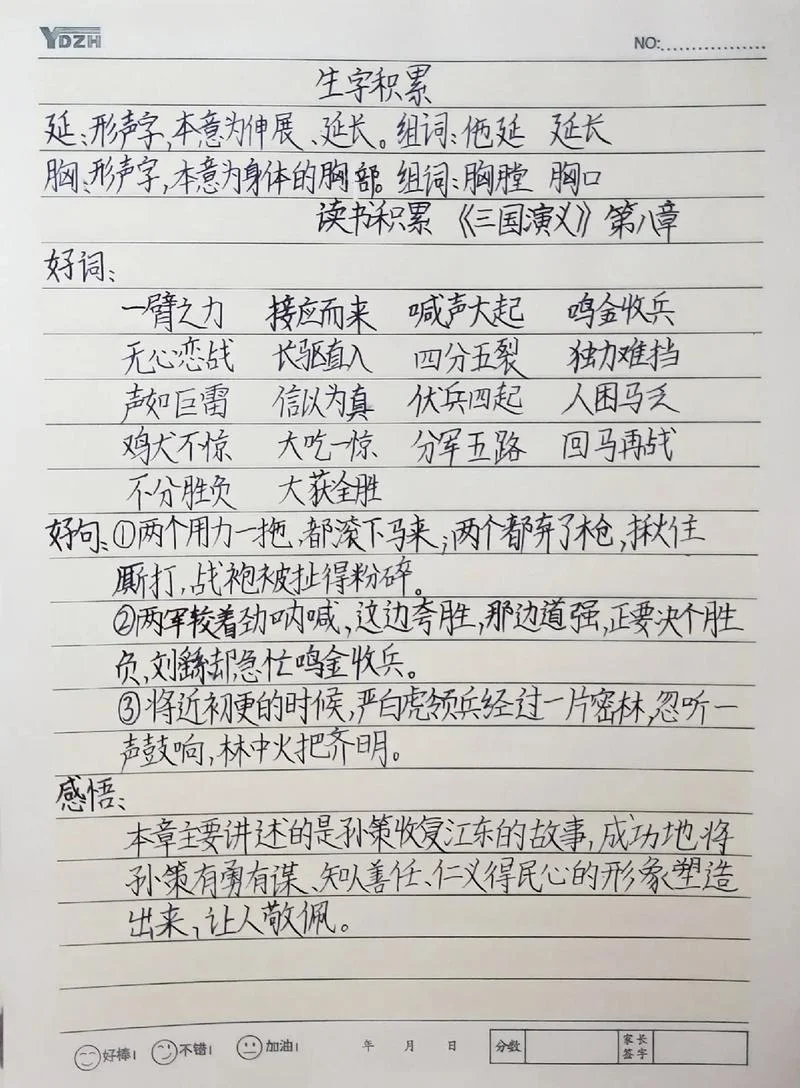 YDZH
NO:
生字积累
延:形声字,本意为伸展、延长。组词:他延 延长
胸:形声字,本意为身体的胸部。组词:胸膛 胸口
读书积累 《三国演义》第八章
好词:
一臂之力 接应而来 喊声大起 鸣金收兵
无心恋战 长驱直入 四分五裂 独力难挡
声如巨雷 信以为真 伏兵四起 人困马乏
鸡犬不惊 大吃一惊 分军五路 回马再战
不分胜负 大获全胜
好句:①两个用力一拖,都滚下马来;两个都弃了枪,揪住
厮打,战袍被扯得粉碎。
②两军较着劲呐喊,这边夸胜,那边道强,正要决个胜
负,刘繇却急忙鸣金收兵。
③将近初更的时候,严白虎领兵经过一片密林,忽听一
声鼓响,林中火把齐明。
感悟:
本章主要讲述的是孙策收复江东的故事,成功地将
孙策有勇有谋、知人善任、仁义得民心的形象塑造
出来,让人敬佩。
好棒! 不错! 加油! 年 月 日 分数 家长签字